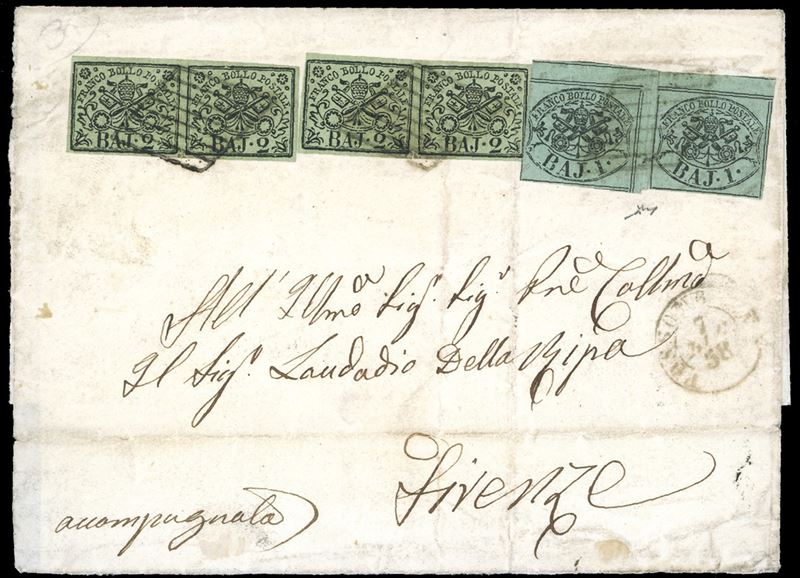 FRANCO BOLLO POSTALE
BAJ. 2
FRANCO BOLLO POSTALE
BAJ. 2
FRANCO BOLLO POSTALE
BAJ. 2
FRANCO BOLLO POSTALE
BAJ. 2
FRANCO BOLLO POSTALE
BAJ. 1.
FRANCO BOLLO POSTALE
BAJ. 1.
All' Illmo Sigr. Sigr. Pne Collmo
Il Sigr. Laudadio Della Ripa
Firenze
acompagnata
7
58